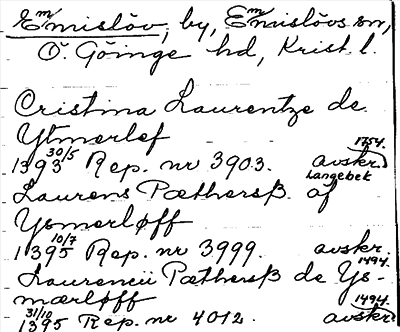 Emmislöv, by, Emmislövs sn,
Ö. Göinge hd, Krist. l.
Cristina Laurentze de
Ytmerlef 1754.
1393 30/5 Rep. nr 3903. avskr.
Langebek
Laurens Pæthersß af
Ysmerløff
1395 10/7 Rep. nr 3999. avskr.
1494.
Laurencii Pæthersß de Ys-
mærløff 1494.
1395 31/10 Rep. nr 4012. avskr.